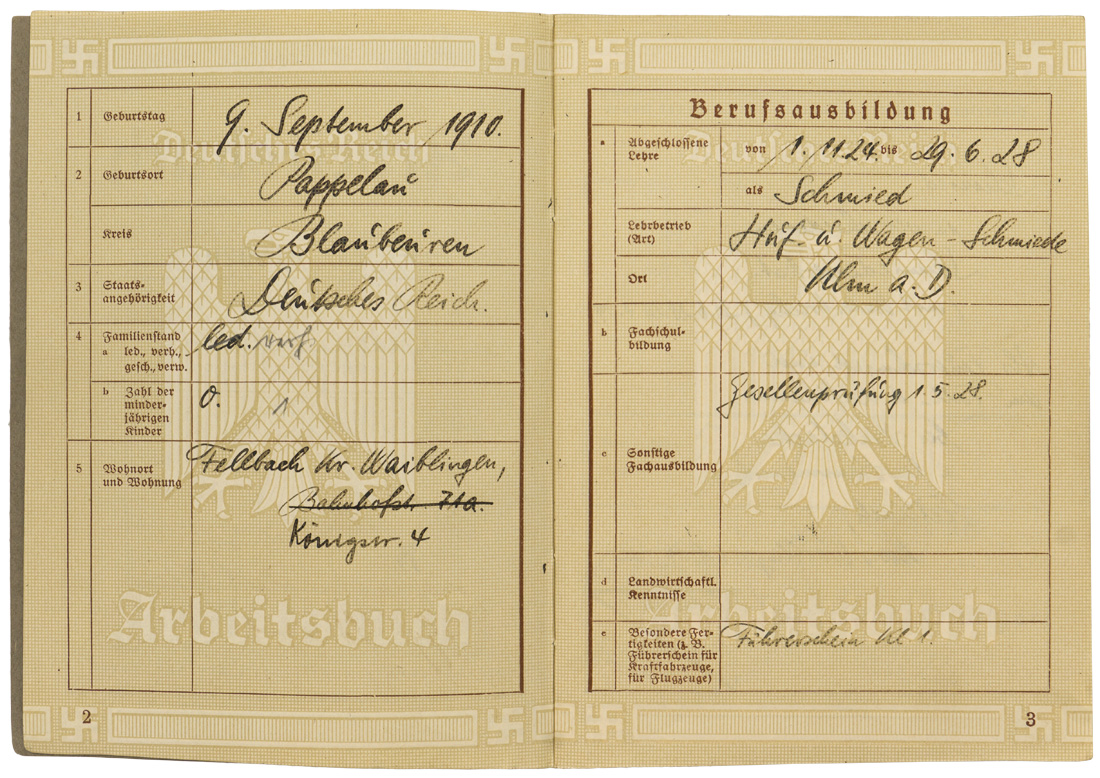 1 Geburtstag 9. September 1910.
Deutsches Reich
2 Geburtsort Pappelau
Kreis Blaubeuren
3 Staats-
angehörigkeit Deutsches Reich.
4 Familienstand
a led., verh.,
gesch., verw. led. verh
b Zahl der
minder-
jährigen
Kinder 0. 1
5 Wohnort
und Wohnung Fellbach Kr. Waiblingen,
Bahnhofst. 71a.
Königstr. 4
Arbeitsbuch
2
Berufsausbildung
a Abgeschlossene
Lehre von 1.11.24. bis 29.6.28
Deutsches Reich
als Schmied
Lehrbetrieb
(Art) Huf- u. Wagen-Schmiede
Ort Ulm a. D.
b Fachschul-
bildung
Gesellenprüfung 1.5.28.
c Sonstige
Fachausbildung
d Landwirtschaftl.
Kenntnisse
Arbeitsbuch
e Besondere Fer-
tigkeiten (z. B.
Führerschein für
Kraftfahrzeuge,
für Flugzeuge) Führerschein Kl 1.
3